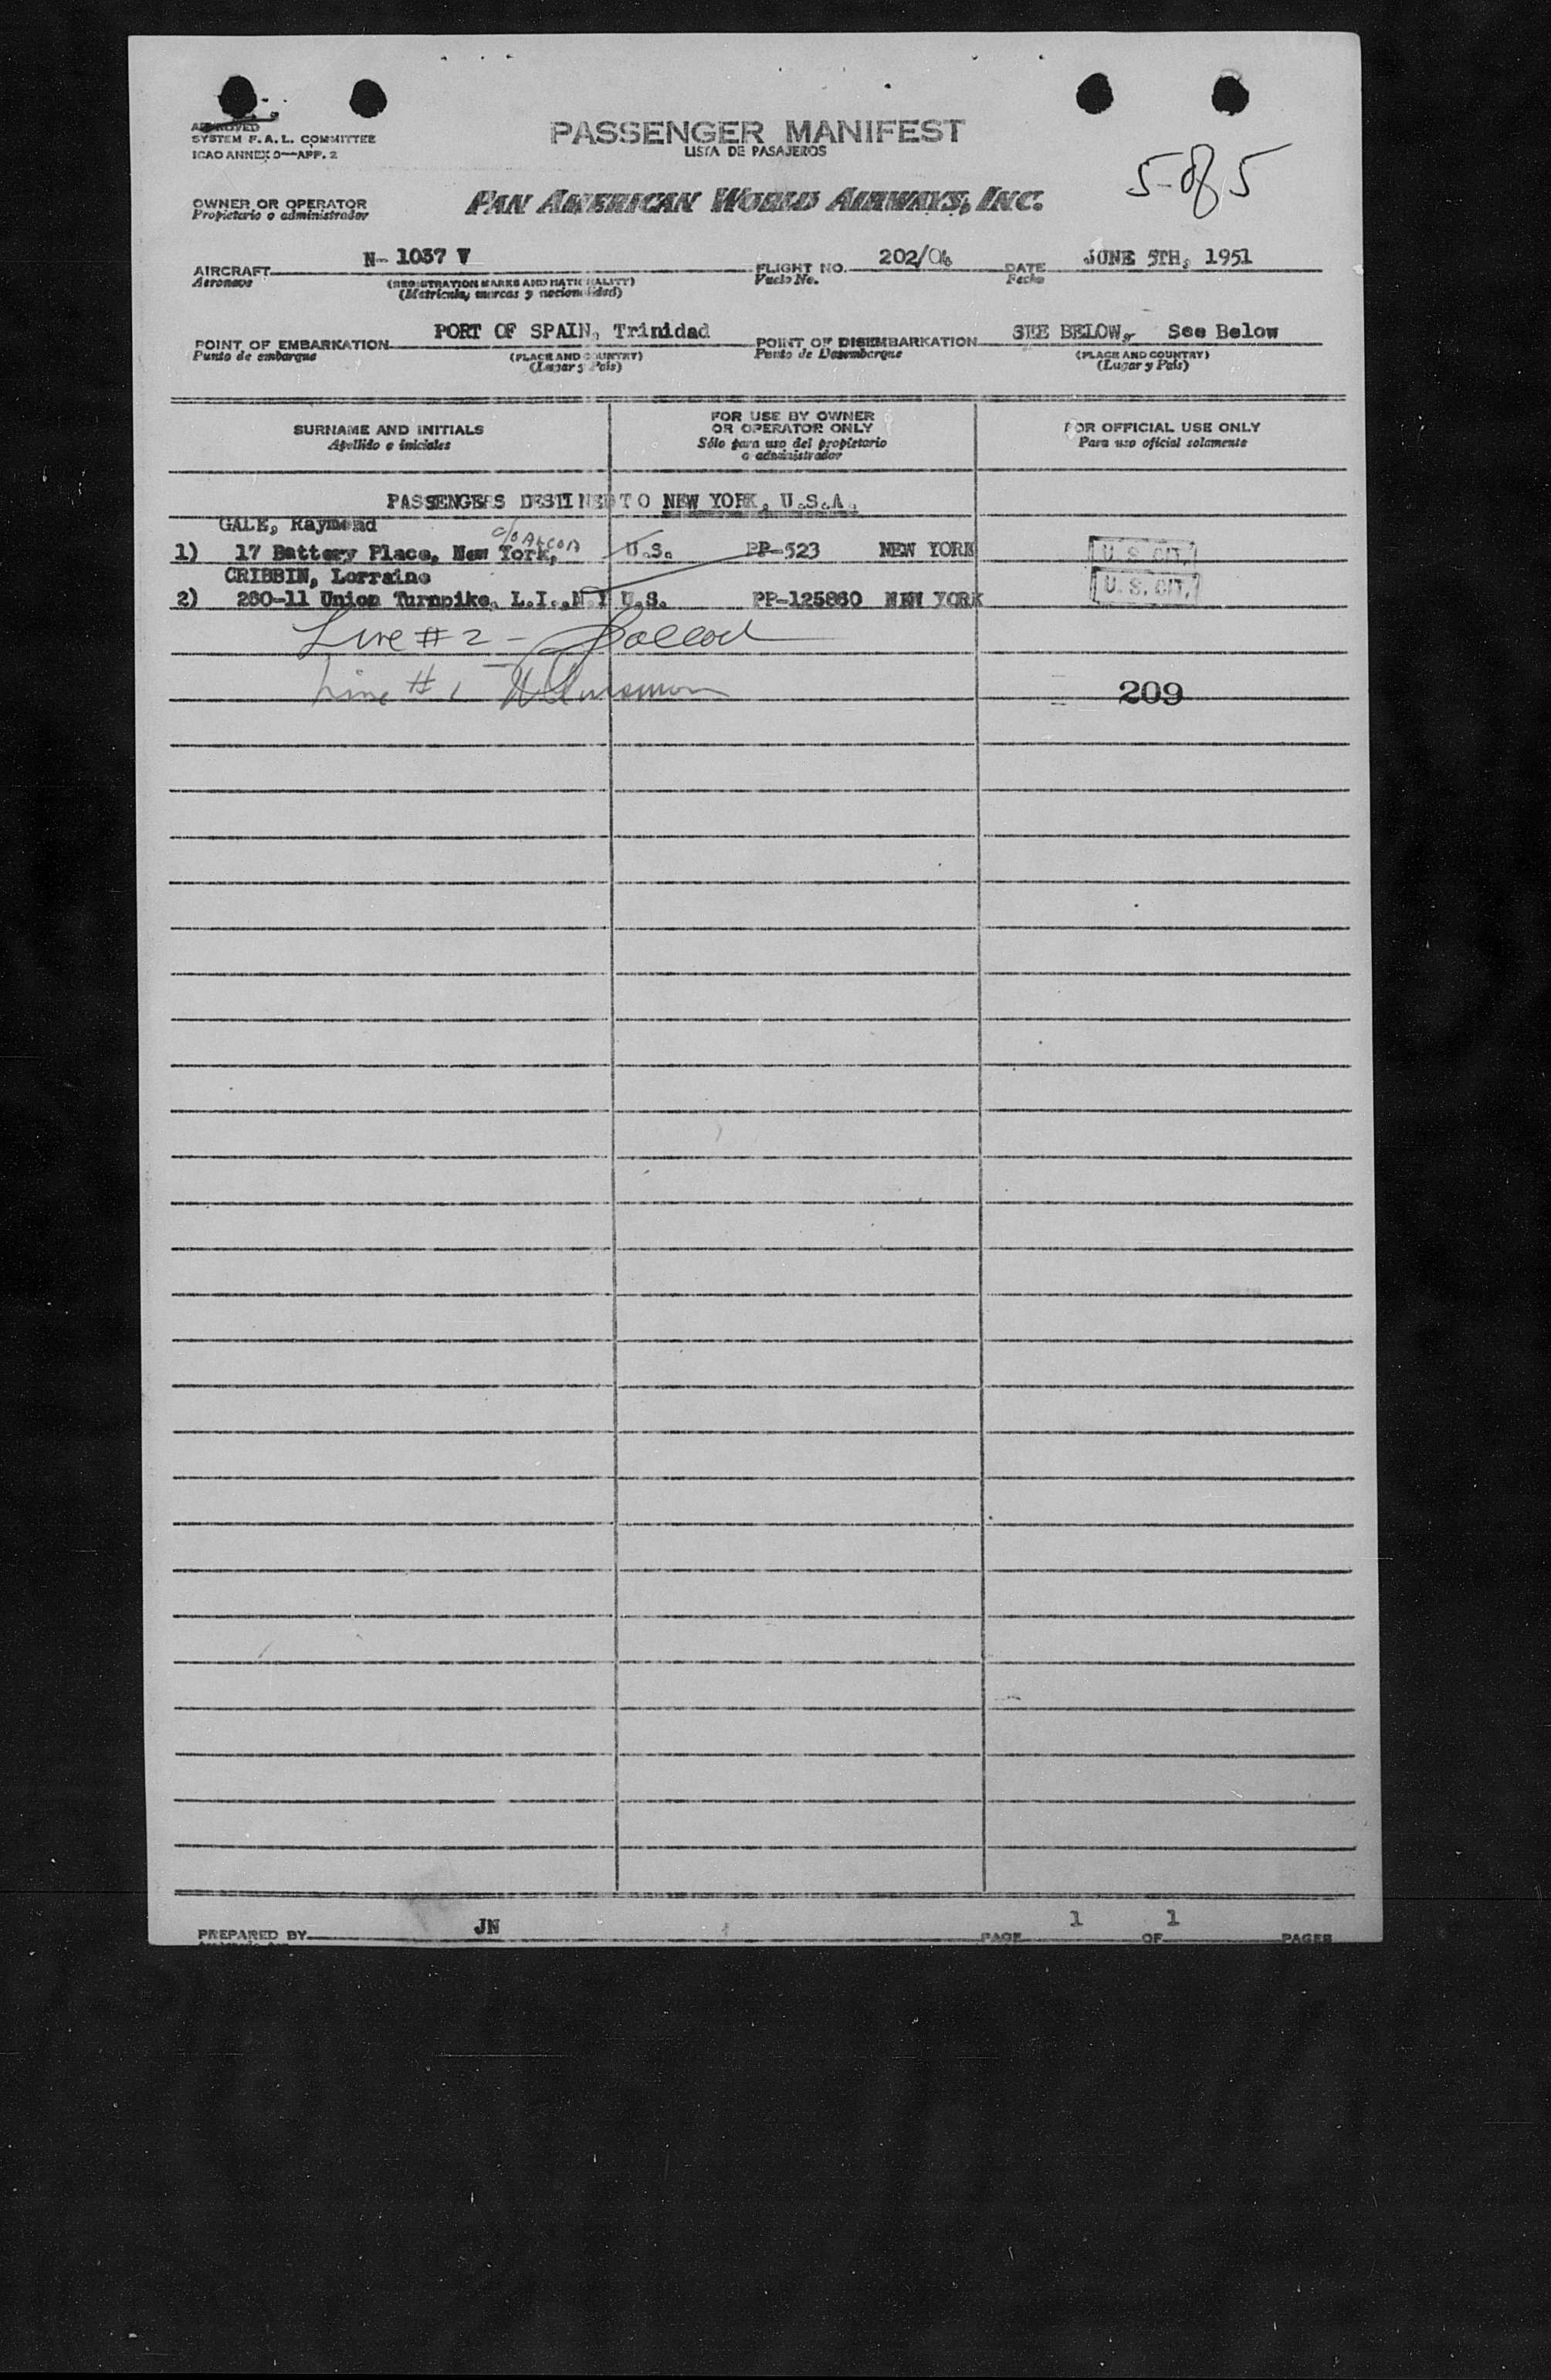 APPROVED
SYSTEM F.A.L. COMMITTEE
ICAO ANNEX 9—APP. 2
PASSENGER MANIFEST
LISTA DE PASAJEROS
5 of 5
OWNER OR OPERATOR
Propietario o administrador
PAN AMERICAN WORLD AIRWAYS, INC.
AIRCRAFT N- 1037 V FLIGHT NO. 202/04 DATE JUNE 5TH, 1951
Aeronave (REGISTRATION MARKS AND NATIONALITY) Vuelo No. Fecha
(Matrícula, marcas y nacionalidad)
POINT OF EMBARKATION PORT OF SPAIN, Trinidad POINT OF DISEMBARKATION SEE BELOW, See Below
Punto de embarque (PLACE AND COUNTRY) Punto de Desembarque (PLACE AND COUNTRY)
(Lugar y País) (Lugar y País)
SURNAME AND INITIALS
Apellido e iniciales
FOR USE BY OWNER
OR OPERATOR ONLY
Sólo para uso del propietario
o administrador
FOR OFFICIAL USE ONLY
Para uso oficial solamente
PASSENGERS DESTINED TO NEW YORK, U.S.A.
GALE, Raymond
c/o ALCOA
1) 17 Battery Place, New York, U.S. PP-523 NEW YORK U. S. CIT.
CRIBBIN, Lorraine
2) 260-11 Union Turnpike, L.I.,N.Y U.S. PP-125860 NEW YORK U. S. CIT.
Line # 2 -
Line # 1
209
PREPARED BY JN PAGE 1 OF 1 PAGES